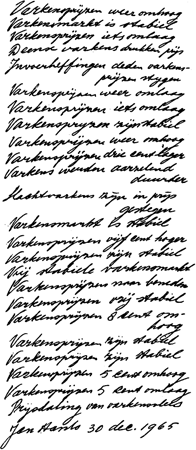 Varkensprijzen weer omhoog
Varkensmarkt is stabiel
Varkensprijzen iets omlaag
Deense varkens drukken prijs
Invoerheffingen deden varkens-
prijzen stijgen
Varkensprijzen weer omlaag
Varkensprijzen iets omlaag
Varkensprijzen zijn stabiel
Varkensprijzen weer omhoog
Varkensprijzen drie cent lager
Varkens werden aarzelend
duurder
Slachtvarkens zijn in prijs
gestegen
Varkensmarkt is stabiel
Varkensprijzen vijf cent hoger
Varkensprijzen zijn stabiel
Vrij stabiele varkensmarkt
Varkensprijzen naar beneden
Varkensprijzen vrij stabiel
Varkensprijzen 5 cent om-
hoog
Varkensprijzen zijn stabiel
Varkensprijzen zijn stabiel
Varkensprijzen 5 cent omhoog
Varkensprijzen 5 cent omlaag
Prijsdaling van varkensvlees
Jan Hanlo 30 dec. 1965